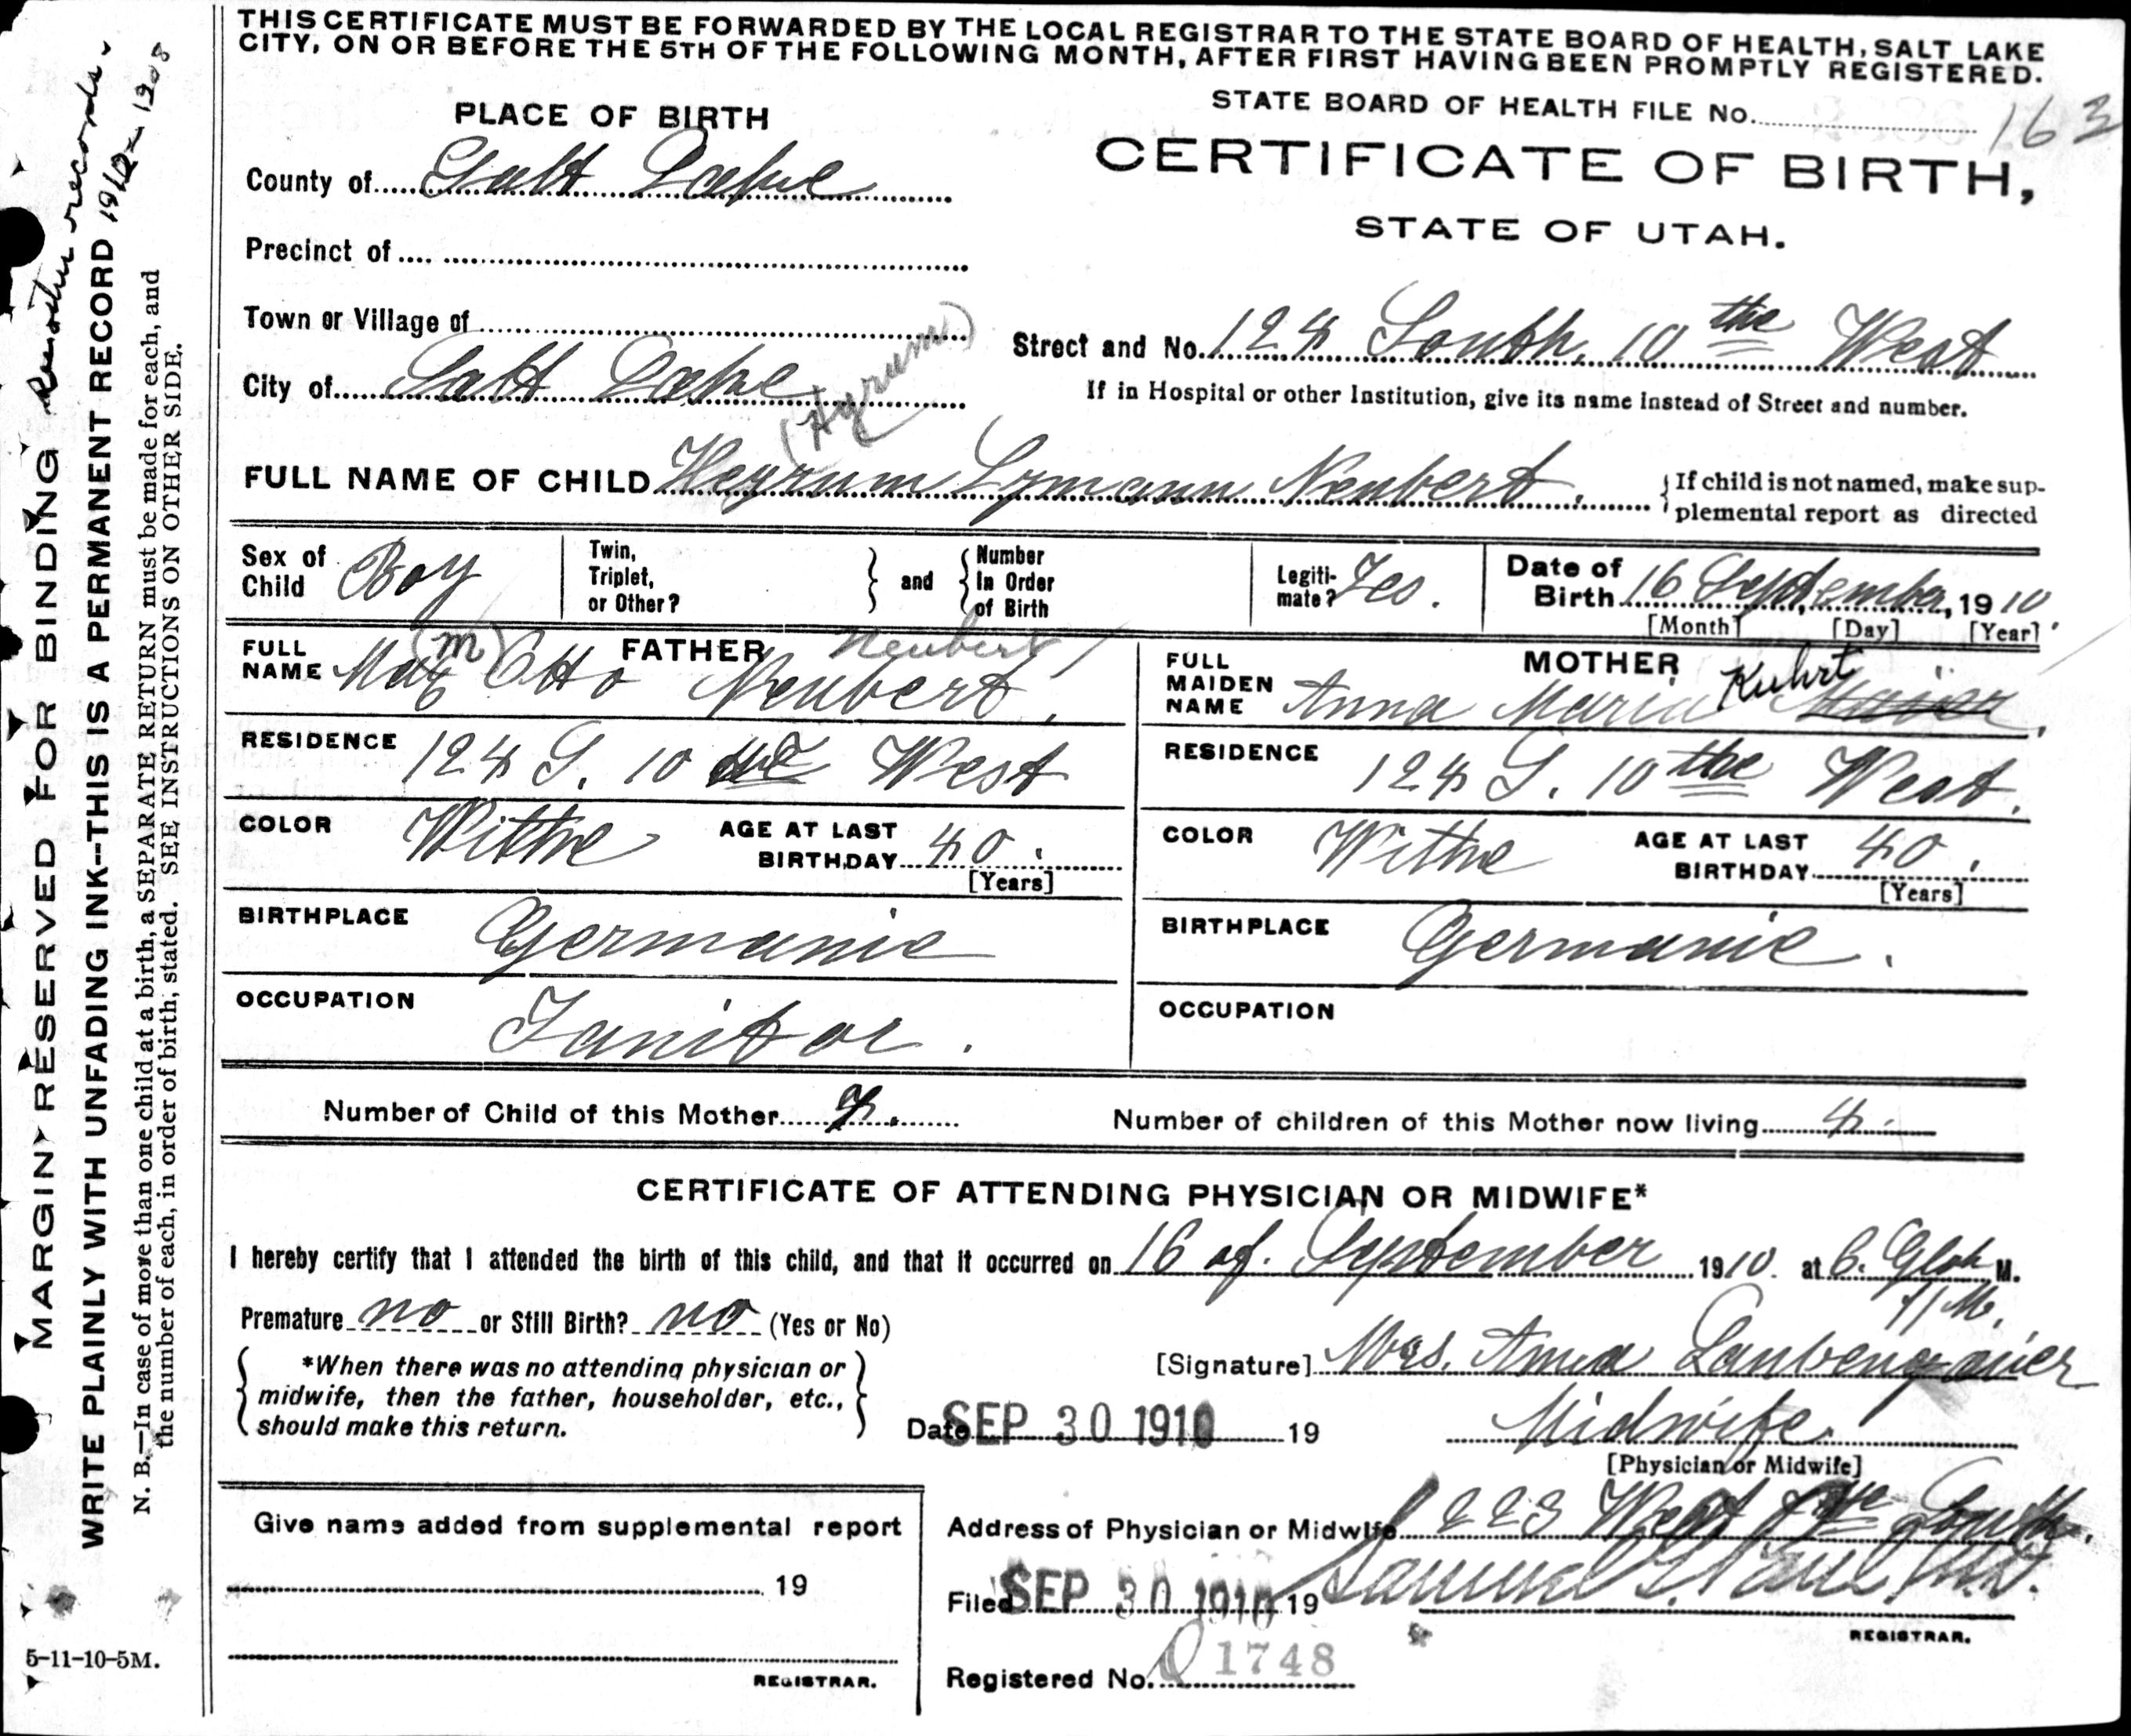 THIS CERTIFICATE MUST BE FORWARDED BY THE LOCAL REGISTRAR TO THE STATE BOARD OF HEALTH, SALT LAKE
CITY, ON OR BEFORE THE 5TH OF THE FOLLOWING MONTH, AFTER FIRST HAVING BEEN PROMPTLY REGISTERED.
PLACE OF BIRTH
STATE BOARD OF HEALTH FILE No. 163
CERTIFICATE OF BIRTH,
STATE OF UTAH.
County of Salt Lake
Precinct of
Town or Village of
Street and No. 124 South. 10 the West
City of Salt Lake
If in Hospital or other Institution, give its name instead of Street and number.
(Hyrum)
FULL NAME OF CHILD Heyrum Lymann Neubert.
If child is not named, make sup-
plemental report as directed
Sex of Child Boy
Twin, Triplet, or Other?
and
Number In Order of Birth
Legiti-mate? Yes.
Date of Birth 16 September, 1910
[Month] [Day] [Year]
FATHER
FULL NAME Max (m) Otto Neubert. Neubert
MOTHER
FULL MAIDEN NAME Anna Maria Kuhrt
RESIDENCE 124 S. 10 the West
RESIDENCE 124 S. 10 the West.
COLOR Withe
AGE AT LAST BIRTHDAY 40.
[Years]
COLOR Withe
AGE AT LAST BIRTHDAY 40.
[Years]
BIRTHPLACE Germanie
BIRTHPLACE Germanie.
OCCUPATION Janitor.
OCCUPATION
Number of Child of this Mother
Number of children of this Mother now living 4
CERTIFICATE OF ATTENDING PHYSICIAN OR MIDWIFE*
I hereby certify that I attended the birth of this child, and that it occurred on 16 of. September 1910. at 6. M.
Premature no or Still Birth? no (Yes or No)
*When there was no attending physician or
midwife, then the father, householder, etc.,
should make this return.
[Signature] Mrs. Anna
Date SEP 30 1910 19
Midwife.
[Physician or Midwife]
Give name added from supplemental report
19
REGISTRAR.
Address of Physician or Midwife 223 West South.
Filed SEP 30 1910 19 Samuel G. Paul M.D.
REGISTRAR.
Registered No. 1748
MARGIN RESERVED FOR BINDING
records.
WRITE PLAINLY WITH UNFADING INK--THIS IS A PERMANENT RECORD
1908
N. B.—In case of more than one child at a birth, a SEPARATE RETURN must be made for each, and
the number of each, in order of birth, stated. SEE INSTRUCTIONS ON OTHER SIDE.
5-11-10-5M.